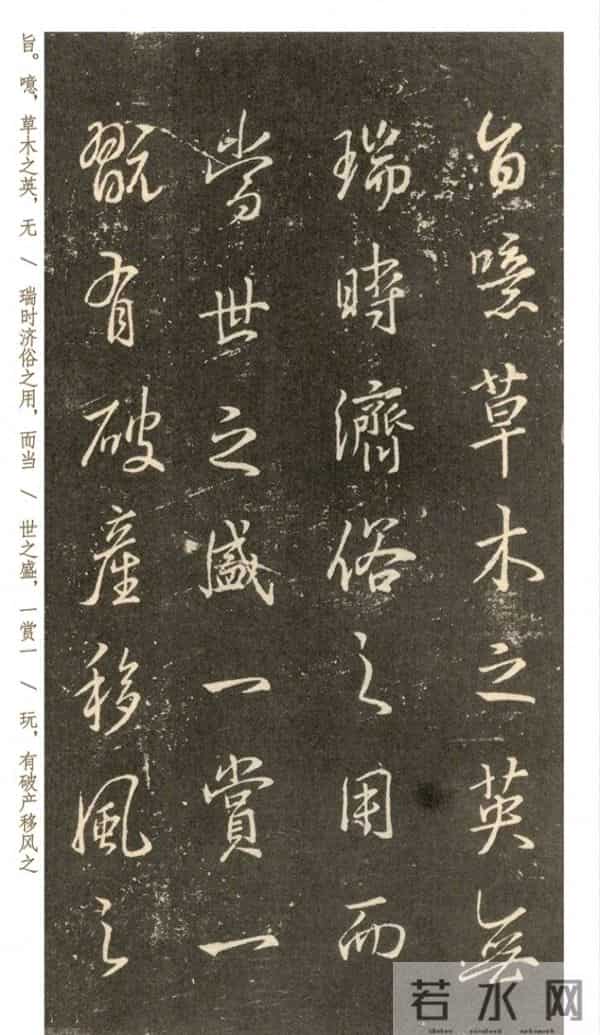 旨噫草木之英無
瑞時濟俗之用而
當世之盛一賞一
翫有破產移風之
旨。噫，草木之英，无 / 瑞时济俗之用，而当 / 世之盛，一赏一 / 玩，有破产移风之
若水网